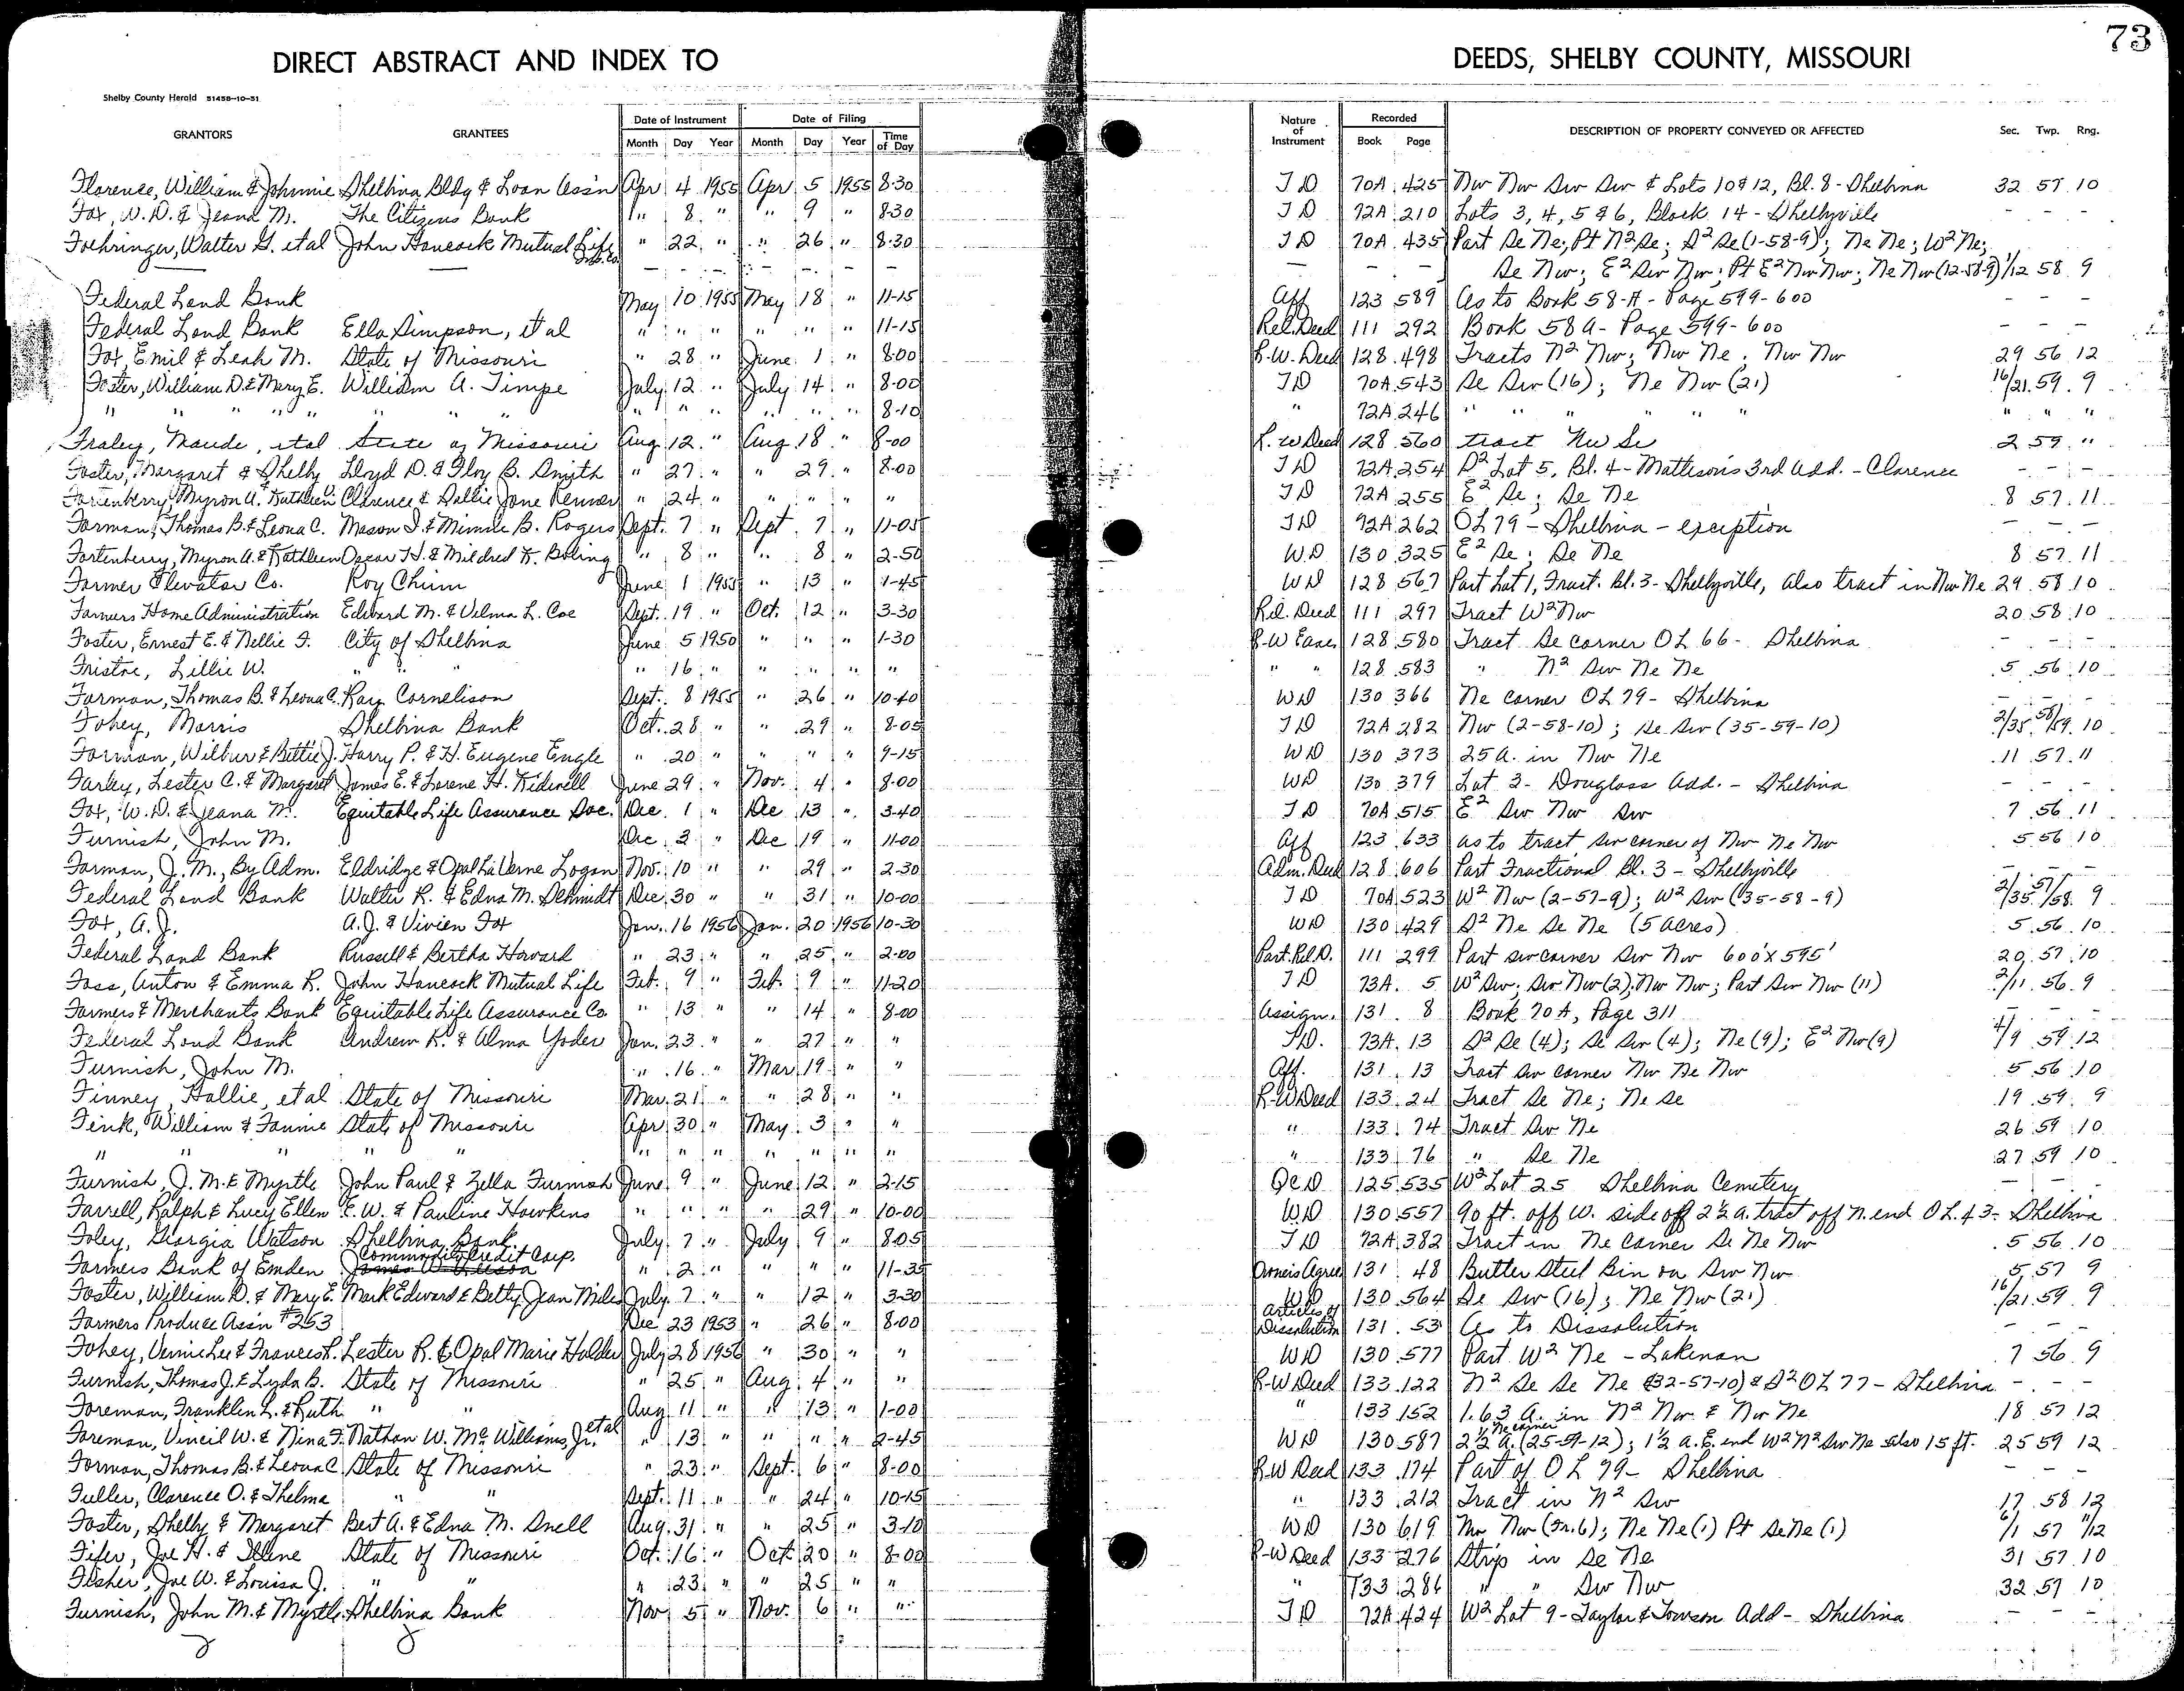 73
DIRECT ABSTRACT AND INDEX TO DEEDS, SHELBY COUNTY, MISSOURI
Shelby County Herald 51458-10-51
GRANTORS GRANTEES Date of Instrument Month Day Year Date of Filing Month Day Year Time of Day Nature of Instrument Recorded Book Page DESCRIPTION OF PROPERTY CONVEYED OR AFFECTED Sec. Twp. Rng.
Florence, William & Johnnie Shelbina Bldg & Loan Ass'n Apr 4 1955 Apr 5 1955 8-30 T D 70A 425 Nw Nw Sw Sw & Lots 10 & 12, Bl. 8 - Shelbina 32 57 10
Fox, W. D. & Jeana M. The Citizens Bank " 8 " " 9 " 8-30 T D 72A 210 Lots 3, 4, 5 & 6, Block 14 - Shelbyville - - -
Foehringer, Walter G. et al John Hancock Mutual Life Ins. Co. " 22 " " 26 " 8-30 T D 70A 435 Part Se Ne; Pt N² Se; S² Se (1-58-9); Ne Ne; W² Ne;
— — - - - - - - — - - Se Nw; E² Sw Nw; Pt E² Nw Nw; Ne Nw (12-58-9) 1/12 58 9
Federal Land Bank May 10 1955 May 18 " 11-15 Aff 123 589 As to Book 58-A - Page 599-600 - - -
Federal Land Bank Ella Simpson, et al " " " " " " 11-15 Rel. Deed 111 292 Book 58 A - Page 599-600 - - -
Fox, Emil & Leah M. State of Missouri " 28 " June 1 " 8-00 R-W-Deed 128 498 Tracts N² Nw; Nw Ne. Nw Nw 29 56 12
Foster, William D. & Mary E. William A. Timpe July 12 " July 14 " 8-00 T D 70A 543 Se Sw (16); Ne Nw (21) 16/21 59 9
" " " " " " " " " " " " " 8-10 " 72A 246 " " " " " " " "
Fraley, Maude, et al State of Missouri Aug 12 " Aug 18 " 8-00 R-W Deed 128 560 tract Nw Se 2 59 "
Foster, Margaret & Shelby Lloyd D. & Floy B. Smith " 27 " " 29 " 8-00 T D 72A 254 S² Lot 5, Bl. 4 - Mattison's 3rd Add. - Clarence - - -
Fortenberry, Myron A. & Kathleen Clarence & Sallie Jane Kenner " 24 " " " " " T D 72A 255 E² Se; Se Ne 8 57 11
Forman, Thomas B. & Leona C. Mason I. & Minnie B. Rogers Sept. 7 " Sept 7 " 11-05 T D 72A 262 O L 79 - Shelbina - exception - - -
Fortenberry, Myron A. & Kathleen Oscar H. & Mildred K. Boling " 8 " " 8 " 2-50 W D 130 325 E² Se; Se Ne 8 57 11
Farmer Elevator Co. Roy Chinn June 1 1955 " 13 " 1-45 W D 128 567 Part Lot 1, Fract. Bl. 3 - Shelbyville, also tract in Nw Ne 29 58 10
Farmers Home Administration Edward M. & Velma L. Coe Sept. 19 " Oct. 12 " 3-30 Rel. Deed 111 297 Tract W² Nw 20 58 10
Foster, Ernest E. & Nellie F. City of Shelbina June 5 1950 " " " 1-30 R-W Ease. 128 580 Tract Se corner O L 66 - Shelbina - - -
Fristoe, Lillie W. " " " " 16 " " " " " " " 128 583 " N² Sw Ne Ne 5 56 10
Forman, Thomas B. & Leona C. Ray Cornelison Sept. 8 1955 " 26 " 10-40 W D 130 366 Ne corner O L 79 - Shelbina - - -
Fohey, Morris Shelbina Bank Oct. 28 " " 29 " 8-05 T D 72A 282 Nw (2-58-10); Se Sw (35-59-10) 2/35 58/59 10
Forman, Wilbur & Bettie J. Harry P. & H. Eugene Engle " 20 " " " " 9-15 W D 130 373 25 A. in Nw Ne 11 57 11
Farley, Lester C. & Margaret James E. & Lorene H. Kidwell June 29 " Nov. 4 " 8-00 W D 130 379 Lot 3 - Douglass Add. - Shelbina - - -
Fox, W. D. & Jeana M. Equitable Life Assurance Soc. Dec. 1 " Dec 13 " 3-40 T D 70A 515 E² Sw Nw Sw 7 56 11
Furnish, John M. Dec. 3 " Dec 19 " 11-00 Aff 123 633 as to tract Sw corner of Nw Ne Nw 5 56 10
Forman, J. M., By Adm. Eldridge & Opal LaVerne Logan Nov. 10 " " 29 " 2-30 Adm. Deed 128 606 Part Fractional Bl. 3 - Shelbyville - - -
Federal Land Bank Walter R. & Edna M. Schmidt Dec. 30 " " 31 " 10-00 T D 70A 523 W² Nw (2-57-9); W² Sw (35-58-9) 2/35 57/58 9
Fox, A. J. A. J. & Vivien Fox Jan. 16 1956 Jan. 20 1956 10-30 W D 130 429 S² Ne Se Ne (5 acres) 5 56 10
Federal Land Bank Russell & Bertha Howard " 23 " " 25 " 2-00 Part. Rel. D. 111 299 Part Sw corner Sw Nw 600' X 595' 20 57 10
Foss, Anton & Emma R. John Hancock Mutual Life Feb. 9 " Feb. 9 " 11-20 T D 73A 5 W² Sw; Sw Nw (2); Nw Nw; Part Sw Nw (11) 2/11 56 9
Farmers & Merchants Bank Equitable Life Assurance Co. " 13 " " 14 " 8-00 Assign. 131 8 Book 70 A, Page 311 - - -
Federal Land Bank Andrew R. & Alma Yoder Jan. 23 " " 27 " " T D. 73A 13 S² Se (4); Se Sw (4); Ne (9); E² Nw (9) 4/9 59 12
Furnish, John M. " 16 " Mar 19 " " Aff. 131 13 Tract Sw corner Nw Ne Nw 5 56 10
Finney, Hallie, et al State of Missouri Mar. 21 " " 28 " " R-W Deed 133 24 Tract Se Ne; Ne Se 19 59 9
Fink, William & Fannie State of Missouri Apr 30 " May 3 " " " 133 74 Tract Sw Ne 26 59 10
" " " " " " " " " " " " " 133 76 " Se Ne 27 59 10
Furnish, J. M. & Myrtle John Paul & Zella Furnish June 9 " June 12 " 2-15 Q C D 125 535 W² Lot 25 Shelbina Cemetery - - -
Farrell, Ralph & Lucy Ellen E. W. & Pauline Hawkins " " " " 29 " 10-00 W D 130 557 90 ft. off W. side off 2½ a. tract off N. end O L. 43 - Shelbina
Foley, Georgia Watson Shelbina Bank July 7 " July 9 " 8-05 T D 72A 382 Tract in Ne Corner Se Ne Nw 5 56 10
Farmers Bank of Emden Commodity Credit Corp. " 2 " " " " 11-35 Owners Agree. 131 48 Butler Steel Bin on Sw Nw 5 57 9
Foster, William D. & Mary E. Mark Edward & Betty Jean Miles July 7 " " 12 " 3-30 W D 130 564 Se Sw (16); Ne Nw (21) 16/21 59 9
Farmers Produce Ass'n #253 Dec 23 1953 " 26 " 8-00 Articles of Dissolution 131 53 As to Dissolution - - -
Fohey, Vernie Lee & Frances P. Lester R. & Opal Marie Holder July 28 1956 " 30 " " W D 130 577 Part W² Ne - Lakenan 7 56 9
Furnish, Thomas J. & Lyda B. State of Missouri " 25 " Aug. 4 " " R-W Deed 133 122 N² Se Se Ne (32-57-10) & S² O L 77 - Shelbina - - -
Foreman, Franklin L. & Ruth " " Aug 11 " " 13 " 1-00 " 133 152 1.63 A. in N² Nw & Nw Ne 18 57 12
Foreman, Vincil W. & Nina F. Nathan W. McWilliams, Jr. et al " 13 " " " " 2-45 W D 130 587 2½ a. Ne corner (25-59-12); 1½ a. E. end W² N² Sw Ne also 15 ft. 25 59 12
Forman, Thomas B. & Leona C. State of Missouri " 23 " Sept. 6 " 8-00 R-W Deed 133 174 Part of O L 79 - Shelbina - - -
Fuller, Clarence O. & Thelma " " Sept. 11 " " 24 " 10-15 " 133 212 Tract in N² Sw 17 58 12
Foster, Shelby & Margaret Bert A. & Edna M. Snell Aug. 31 " " 25 " 3-10 W D 130 619 Nw Nw (Fr. 6); Ne Ne (1) Pt Se Ne (1) 6/1 57 11/12
Fifer, Joe H. & Illene State of Missouri Oct. 16 " Oct. 20 " 8-00 R-W Deed 133 276 Strip in Se Ne 31 57 10
Fisher, Joe W. & Louisa J. " " " 23 " " 25 " " " 133 286 " " Sw Nw 32 57 10
Furnish, John M. & Myrtle Shelbina Bank Nov 5 " Nov. 6 " " T D 72A 424 W² Lot 9 - Taylor & Towson Add - Shelbina - - -